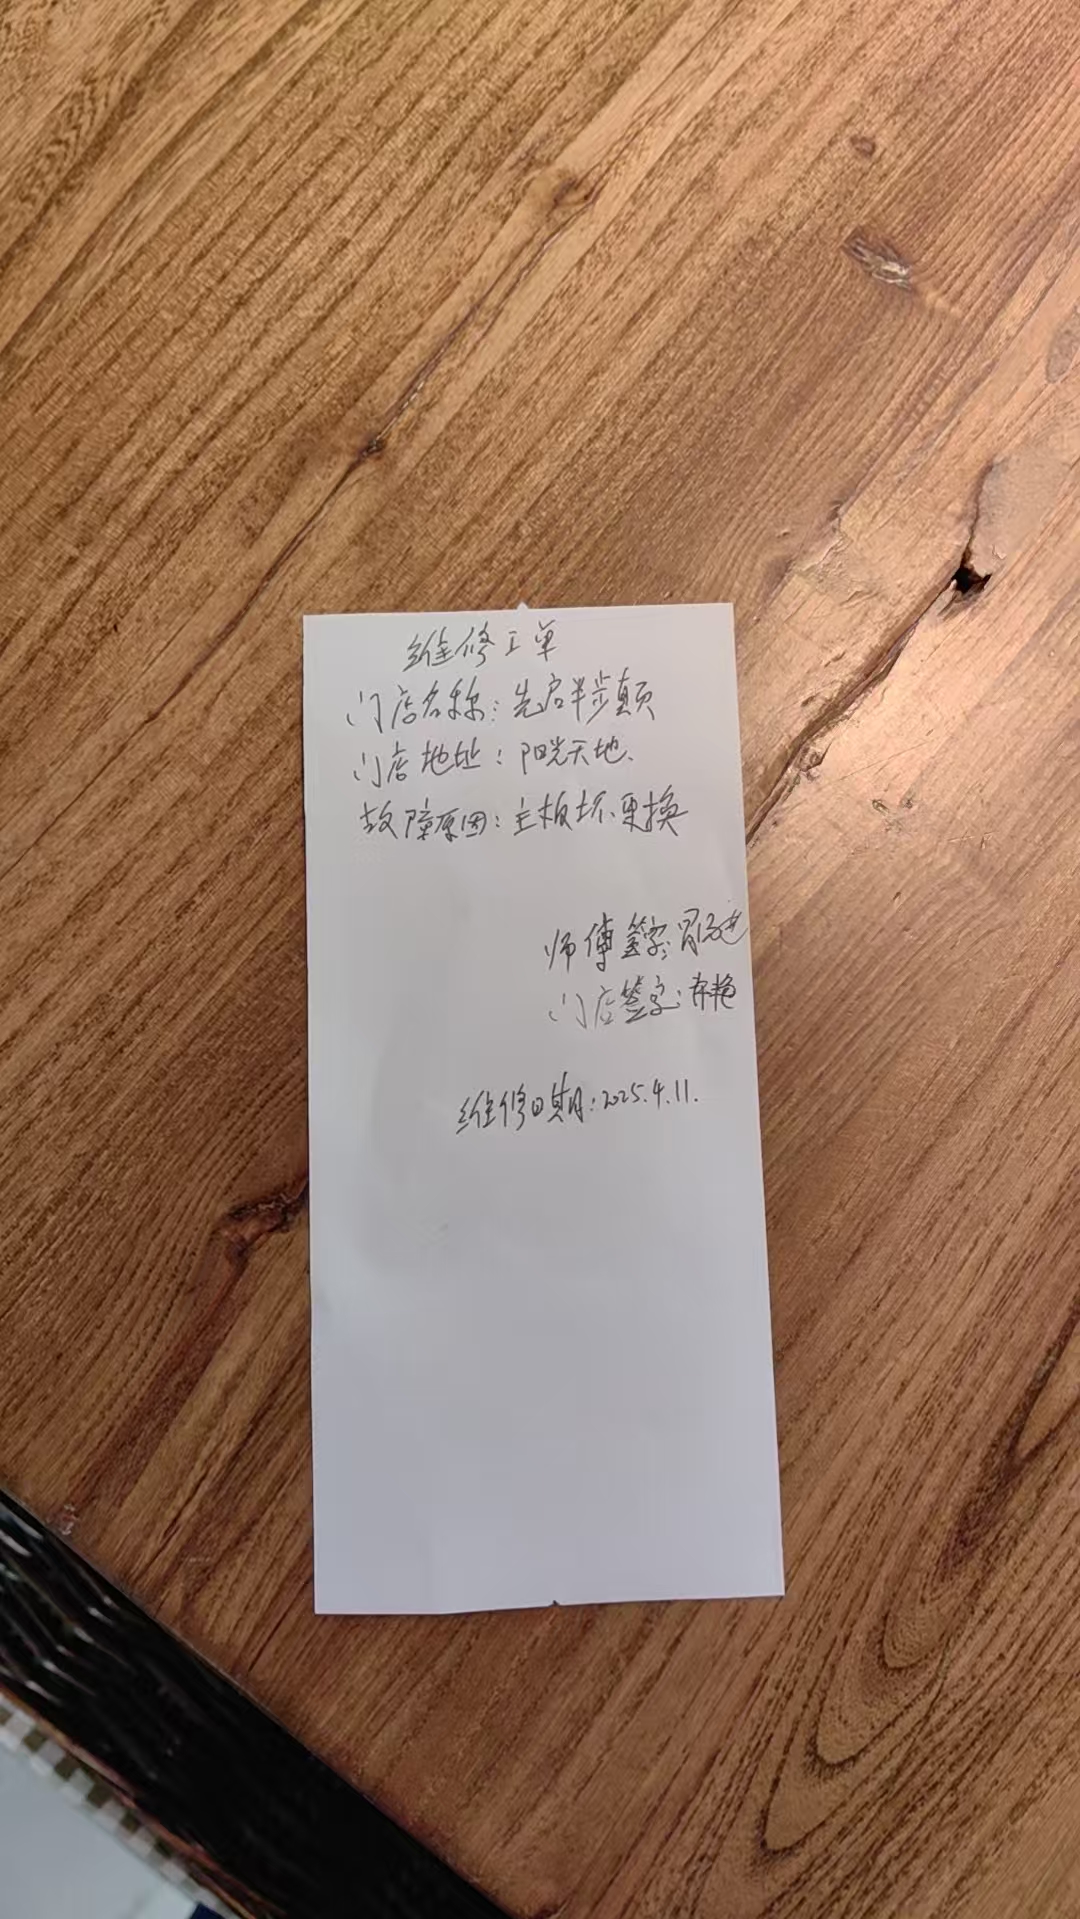 维修工单
门店名称：先启半步颠
门店地址：阳光天地.
故障原因：主板坏.更换
师傅签字：
门店签字：
维修日期：2025.4.11.